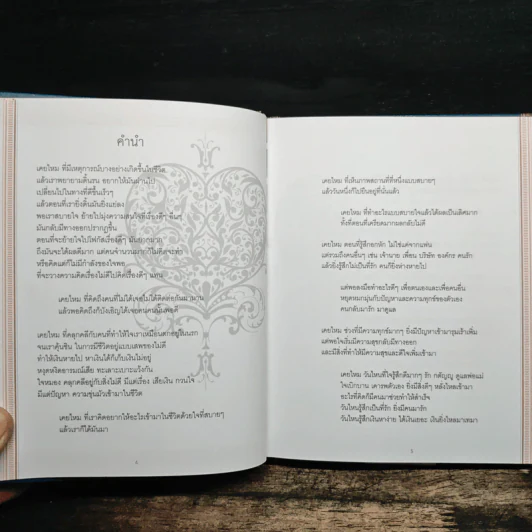 คำนำ
เคยไหม ที่มีเหตุการณ์บางอย่างเกิดขึ้นในชีวิต
แล้วเราพยายามดิ้นรน อยากให้มันผ่านไป
เปลี่ยนไปในทางที่ดีขึ้นเร็วๆ
แล้วตอนที่เรายิ่งดิ้นมันยิ่งแย่ลง
พอเราสบายใจ ย้ายไปมุ่งความสนใจที่เรื่องดีๆ อื่นๆ
มันกลับมีทางออกปรากฏขึ้น
ตอนที่จะย้ายใจไปโฟกัสเรื่องดีๆ มันยากมาก
ถึงมันจะได้ผลดีมาก แต่คนจำนวนมากก็ไม่คิดจะทำ
หรือคิดแต่ก็ไม่มีกำลังของใจพอ
ที่จะวางความคิดเรื่องไม่ดีไปคิดเรื่องดีๆ แทน
เคยไหม ที่คิดถึงคนที่ไม่ได้เจอไม่ได้ติดต่อกันมานาน
แล้วพอคิดถึงก็บังเอิญได้เจอคนคนนั้นพอดี
เคยไหม ที่คลุกคลีกับคนที่ทำให้ใจเราเหมือนตกอยู่ในนรก
จนเราคุ้นชิน ในการมีชีวิตอยู่แบบเสพของไม่ดี
ทำให้เงินหายไป หาเงินได้ก็เก็บเงินไม่อยู่
หงุดหงิดอารมณ์เสีย ทะเลาะเบาะแว้งกัน
ใจหมอง คลุกคลีอยู่กับสิ่งไม่ดี มีแต่เรื่อง เสียเงิน กวนใจ
มีแต่ปัญหา ความขุ่นมัวเข้ามาในชีวิต
เคยไหม ที่เราคิดอยากให้อะไรเข้ามาในชีวิตด้วยใจที่สบายๆ
แล้วเราก็ได้มันมา
4
เคยไหม ที่เห็นภาพสถานที่ที่หนึ่งแบบสบายๆ
แล้ววันหนึ่งก็ไปยืนอยู่ที่นั่นแล้ว
เคยไหม ที่ทำอะไรแบบสบายใจแล้วได้ผลเป็นเลิศมาก
ทั้งที่ตอนที่เครียดมากมันกลับไม่ดี
เคยไหม ตอนที่รู้สึกอกหัก ไม่ใช่แค่จากแฟน
แต่รวมถึงคนอื่นๆ เช่น เจ้านาย เพื่อน บริษัท องค์กร คนรัก
แล้วยิ่งรู้สึกไม่เป็นที่รัก คนก็ยิ่งห่างหายไป
แต่พอลงมือทำอะไรดีๆ เพื่อตนเองและเพื่อคนอื่น
หยุดหมกมุ่นกับปัญหาและความทุกข์ของตัวเอง
คนกลับมารัก มาดูแล
เคยไหม ช่วงที่มีความทุกข์มากๆ ยิ่งมีปัญหาเข้ามารุมเร้าเพิ่ม
แต่พอใจเริ่มมีความสุขกลับมีทางออก
และมีสิ่งที่ทำให้มีความสุขและดีใจเพิ่มเข้ามา
เคยไหม วันไหนที่ใจรู้สึกดีมากๆ รัก กตัญญู ดูแลพ่อแม่
ใจเบิกบาน เคารพตัวเอง ยิ่งมีสิ่งดีๆ หลั่งไหลเข้ามา
อะไรที่คิดก็มีคนมาช่วยทำให้สำเร็จ
วันไหนรู้สึกเป็นที่รัก ยิ่งมีคนมารัก
วันไหนรู้สึกเงินหาง่าย ได้เงินเยอะ เงินยิ่งไหลมาเทมา
5